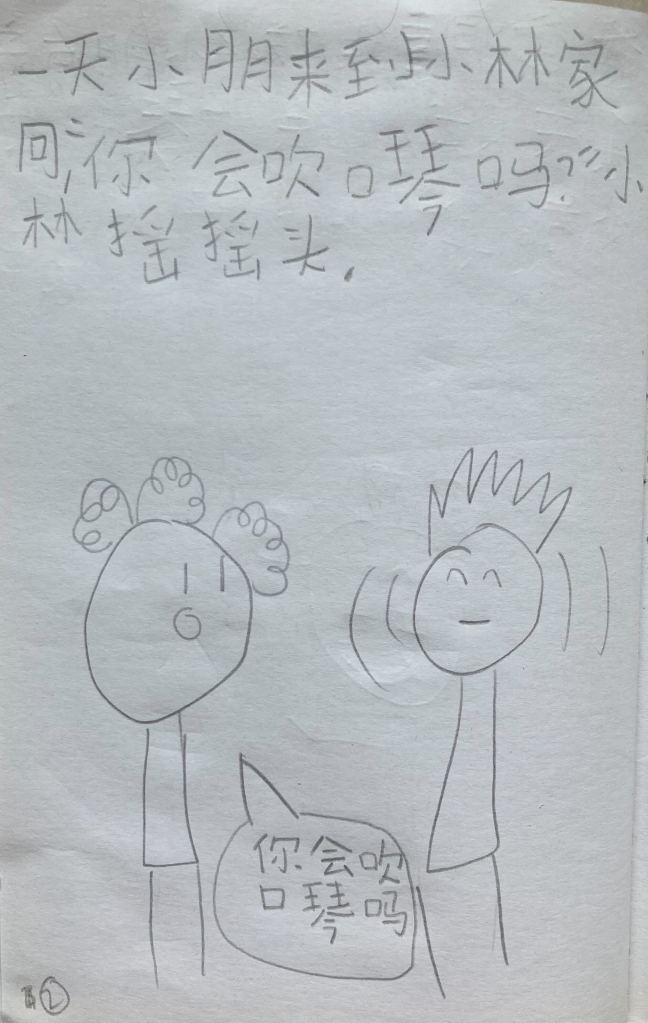 一天小朋来到小林家
问:“你会吹口琴吗?”小
林摇摇头.
你会吹
口琴吗
②